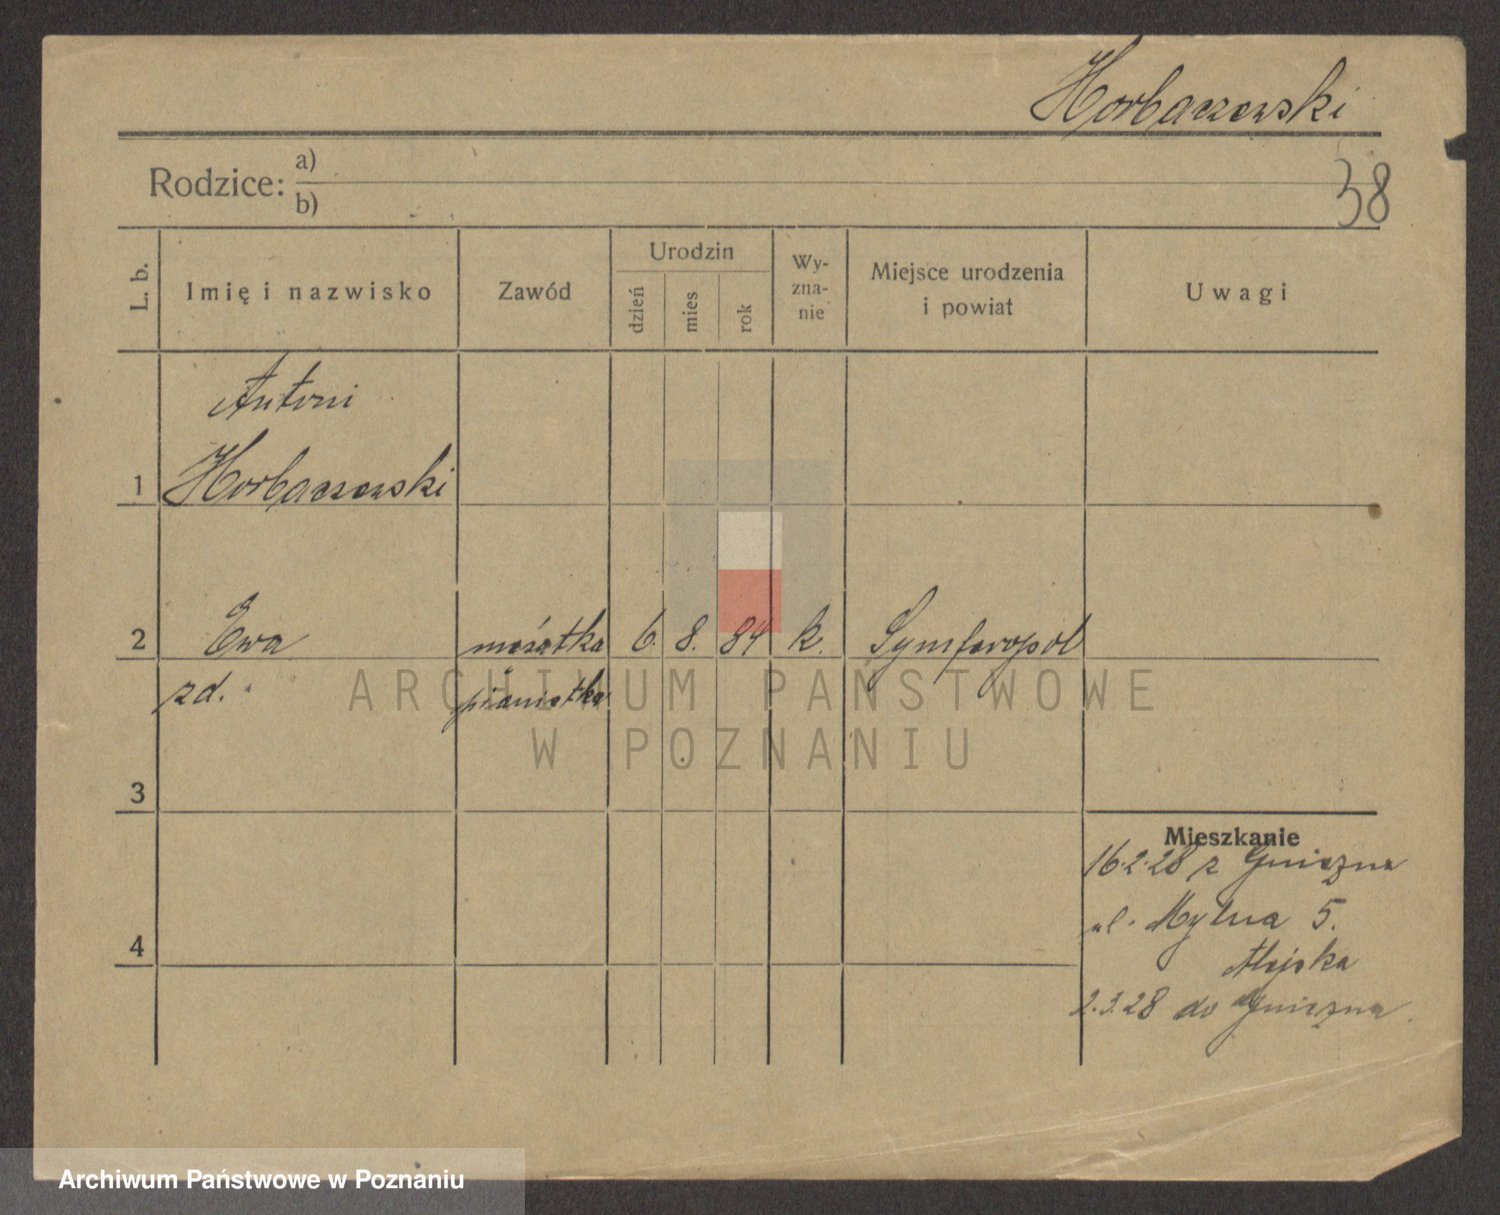 Horbaczewski
Rodzice: a)
b)
38
L. b.
Imię i nazwisko
Zawód
Urodzin
dzień
mies
rok
Wy-
zna-
nie
Miejsce urodzenia
i powiat
Uwagi
Antoni
1 Horbaczewski
2 Ewa mężatka 6. 8. 84 k. Symferopol
zd. pianistka
3
4
Mieszkanie
16.2.28 z Gniezna
ul. Mylna 5.
2.3.28 do Gniezna
ARCHIWUM PAŃSTWOWE
W POZNANIU
Archiwum Państwowe w Poznaniu